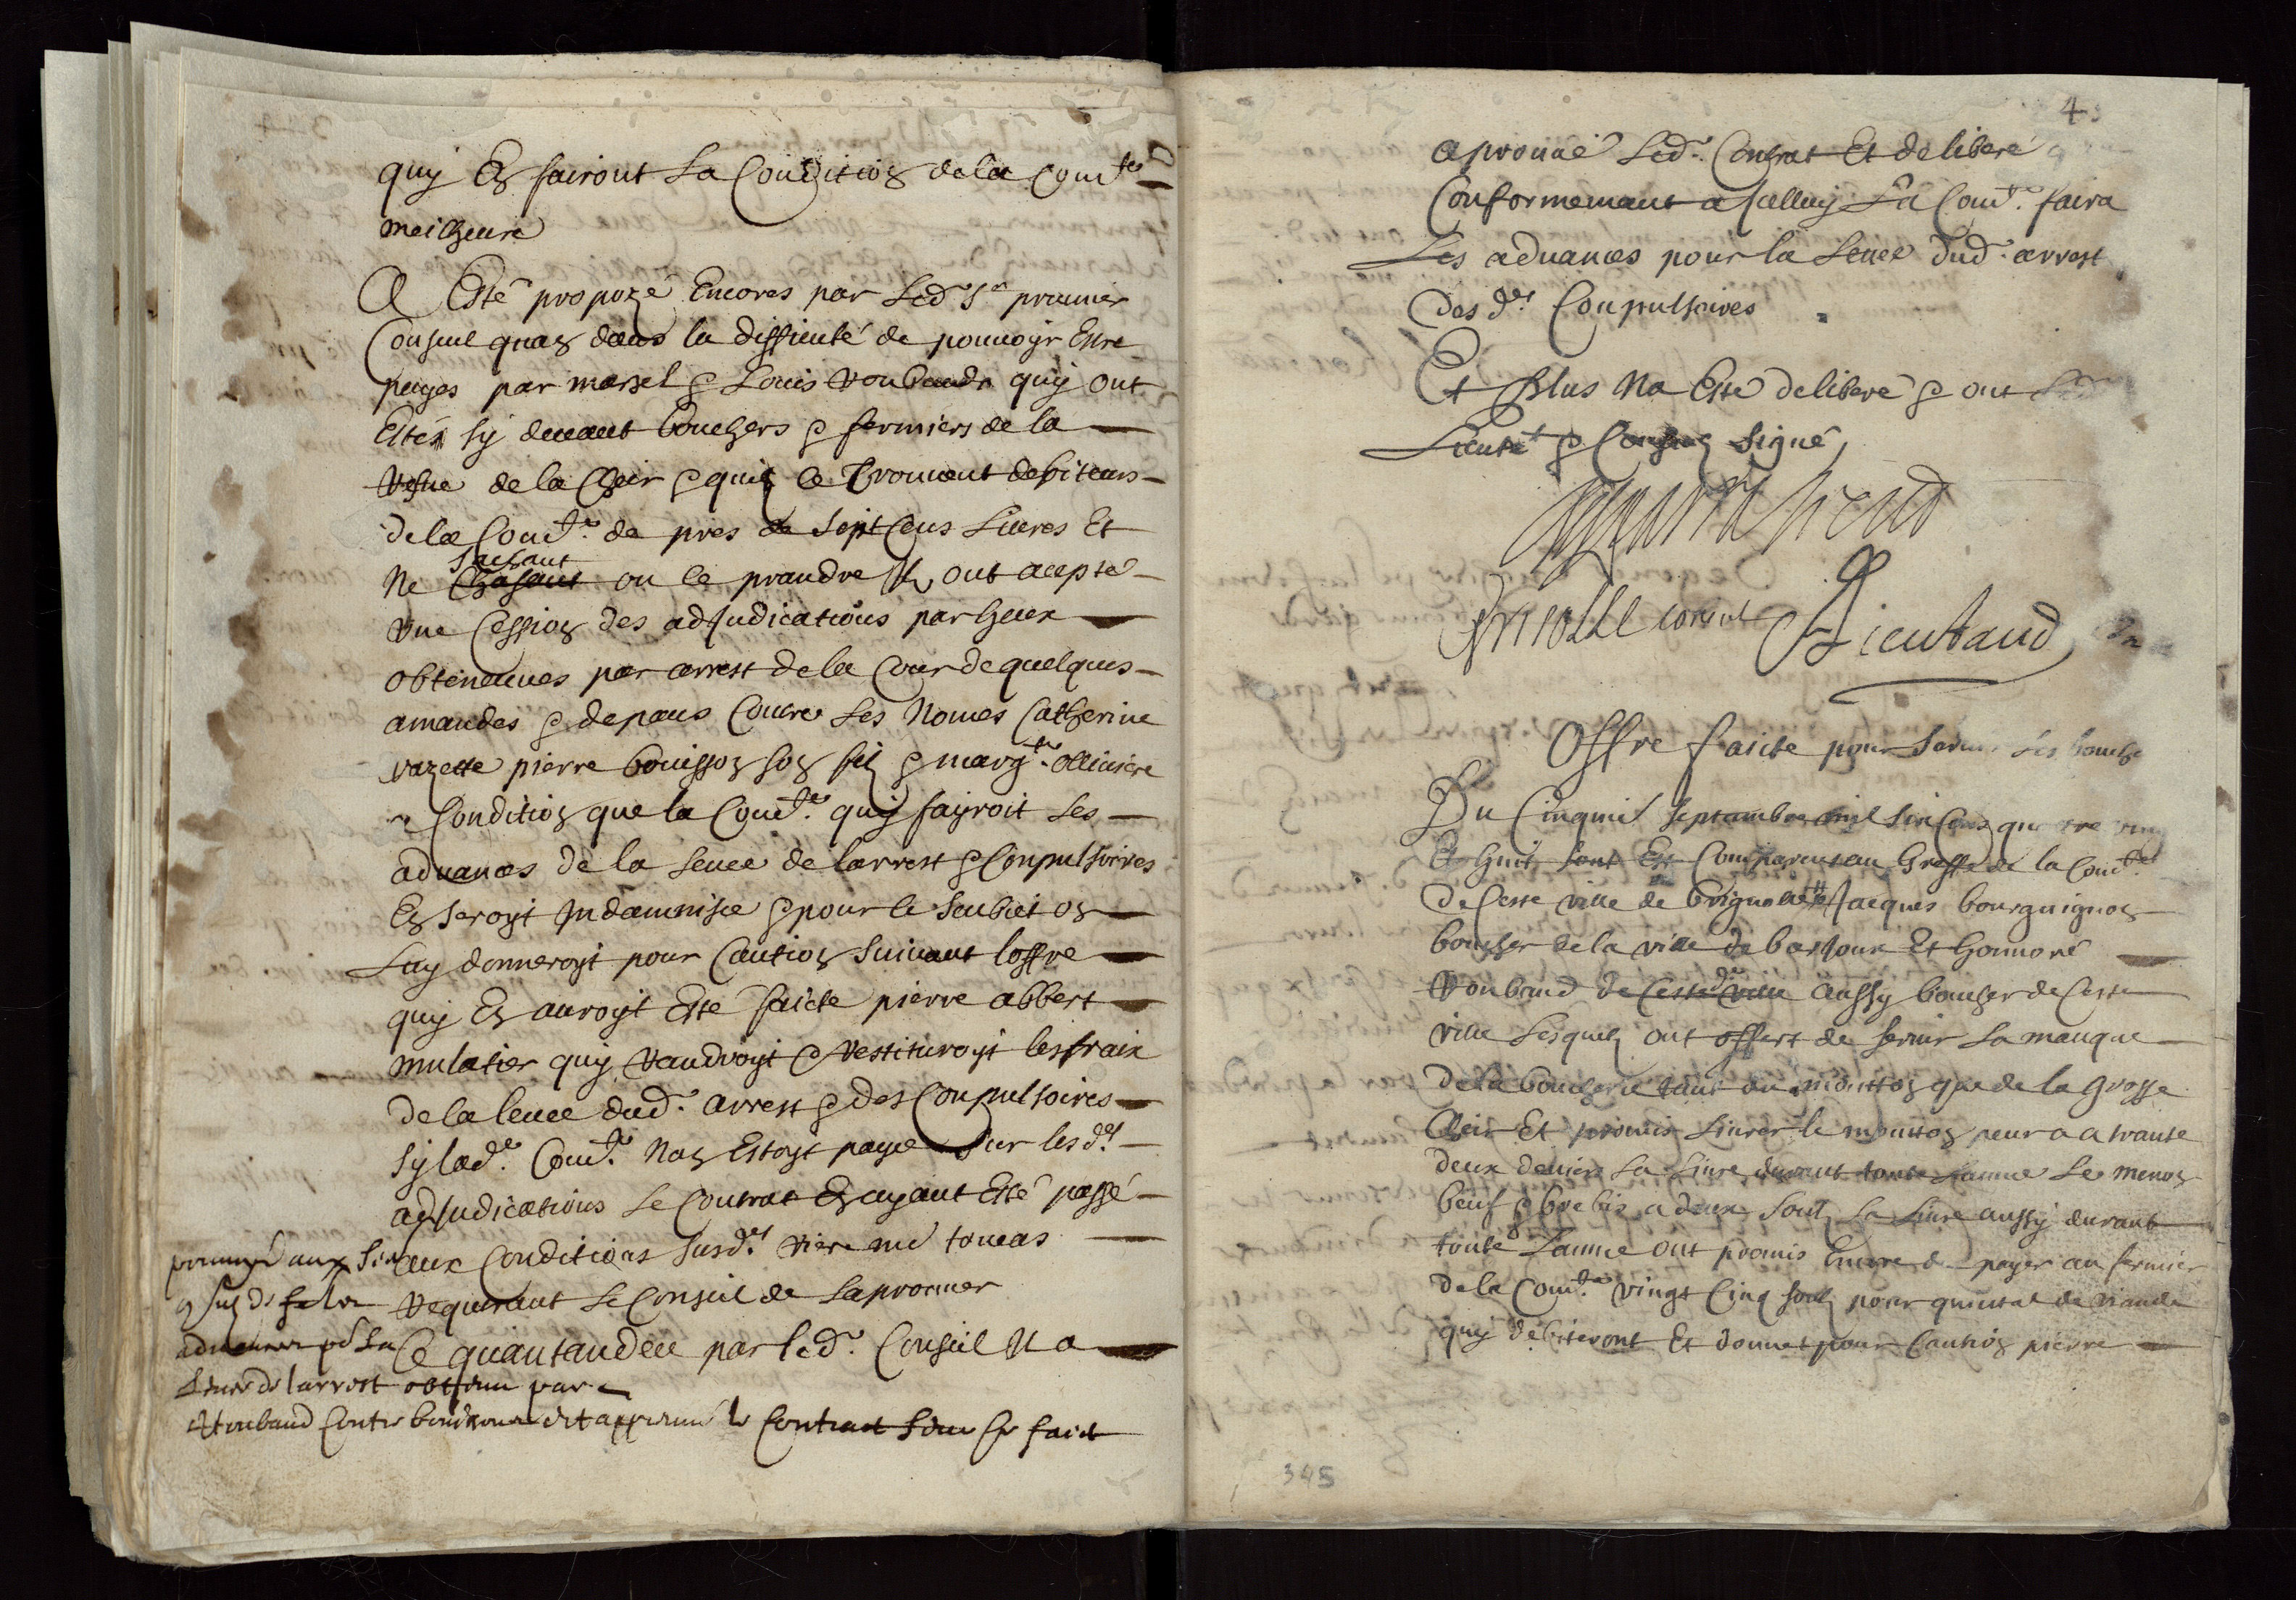 quy En fairont La Condition de la Com.te
meilheure
A Esté propozé Encores par Led. Sr premier
Consul quan dans la difficulté de pouvoyr Estre
payes par marsel & Louis Voubaud quy ont
Estés sy devant bouchers & fermiers de la
de la Cher & quil ce trouvent debiteurs
de la Com.té de pres de sept Cens Livres Et
sachant
Ne ou ce prandre Il ont acepté
Une Cession des adJudications par heux
obteneues par arrest de la Cour de quelques
amandes & depans Contre Les Nomes Catherine
razette pierre bouisson son fil & marg.te olliviere
a Condition que la Com.té quy fayroit Les
advances de la levee de larrest & Conpulsoires
En seroyt Indamnisee & pour le Seubiet on
Luy donneroyt pour Caution suivant loffre
quy En auroyt Esté faicte pierre abbert
mulatier quy randroyt & restituroyt les fraix
de la levee dud. arrest & des Conpulsoires
sy lad.e Com.té Nan Estoyt payee sur les d.es
adJudications Le Contrat En ayant Esté passé
aux Conditions susd.es riere me toucas
requerant Le Conseil de Laprouver
Ce quantandeu par led. Conseil Il a
pourveu aux sieurs
Levee de larrest obtenu par
Voubaud Contre bouisson et approuvé le Contrat sur ce faict
4
aprouvé Led. Contrat Et deliberé
Conformemant a Jcelluy La Com.té faira
Les advances pour la levee dud. arrest
des d.es Conpulsoires
Et plus Na Esté deliberé & ont
Lieute.t & Consul signé
Lieutaud
Offre faicte pour servir Les bouche
Du Cinquie.e septambre mil six Cens quatre ving
Et huit sont Comparus au Greffe de la Com.te
De Ceste ville de brignolle Jacques bourguignon
boucher de la ville de barjoux Et honnoré
Voubaud de Ceste ville aussy boucher de Ceste
ville Lesquels ont offert de servir La manque
de la boucherie tant du moutton que de la grosse
Cher Et promis Livrer le moutton a trante
deux deniers La Livre durant toute Lannee Le menon
beuf & brebis a deux soulz La Livre aussy durant
toute Lannee ont promis Encore de payer au fermier
de la Com.té vingt Cinq soulz pour quintal de viande
quy debiteront Et donnet pour Caution pierre
345